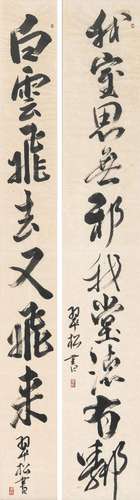 我室思無邪我堂德有鄰
翠松書
白雲飛去又飛来
翠松書